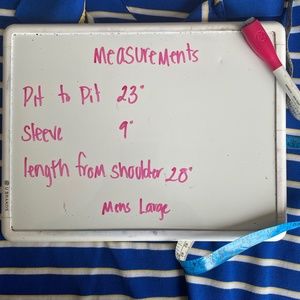 Measurements
Pit to Pit 23"
Sleeve 9"
length from shoulder 28"
Mens Large